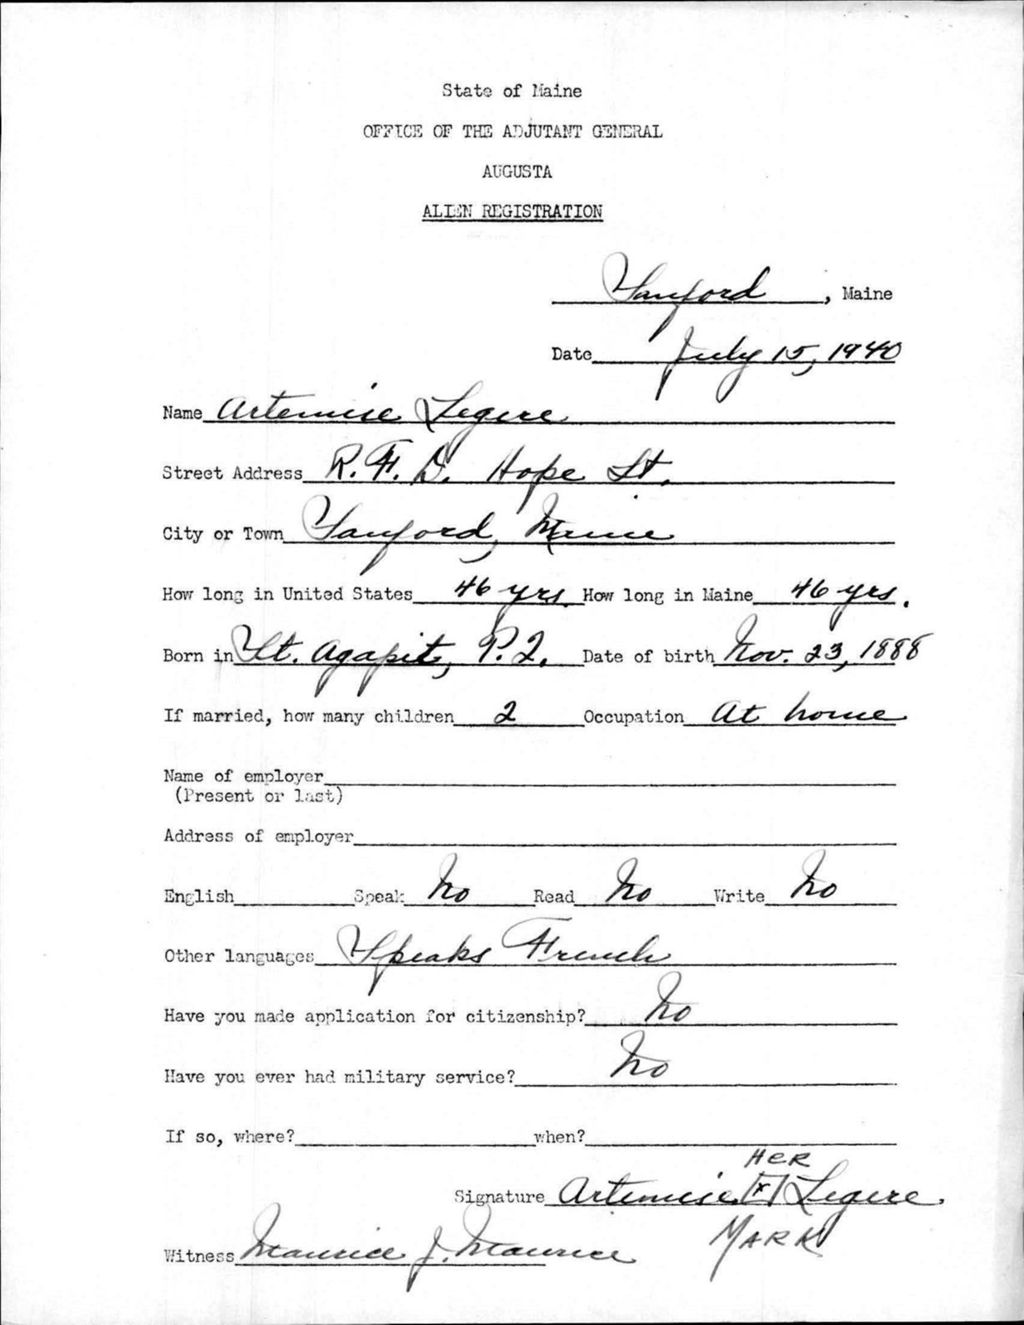 State of Maine
OFFICE OF THE ADJUTANT GENERAL
AUGUSTA
ALIEN REGISTRATION
Sanford, Maine
Date July 15, 1940
Name Artemise Legere
Street Address R. F. D. Hope St.
City or Town Sanford, Maine
How long in United States 46 yrs. How long in Maine 46 yrs.
Born in St. Agapit, P. Q. Date of birth Nov. 23, 1888
If married, how many children 2 Occupation At home
Name of employer
(Present or last)
Address of employer
English Speak No Read No Write No
Other languages Speaks French
Have you made application for citizenship? No
Have you ever had military service? No
If so, where? when?
HER
Signature Artemise x Legere
MARK
Witness Maurice J. Maurice